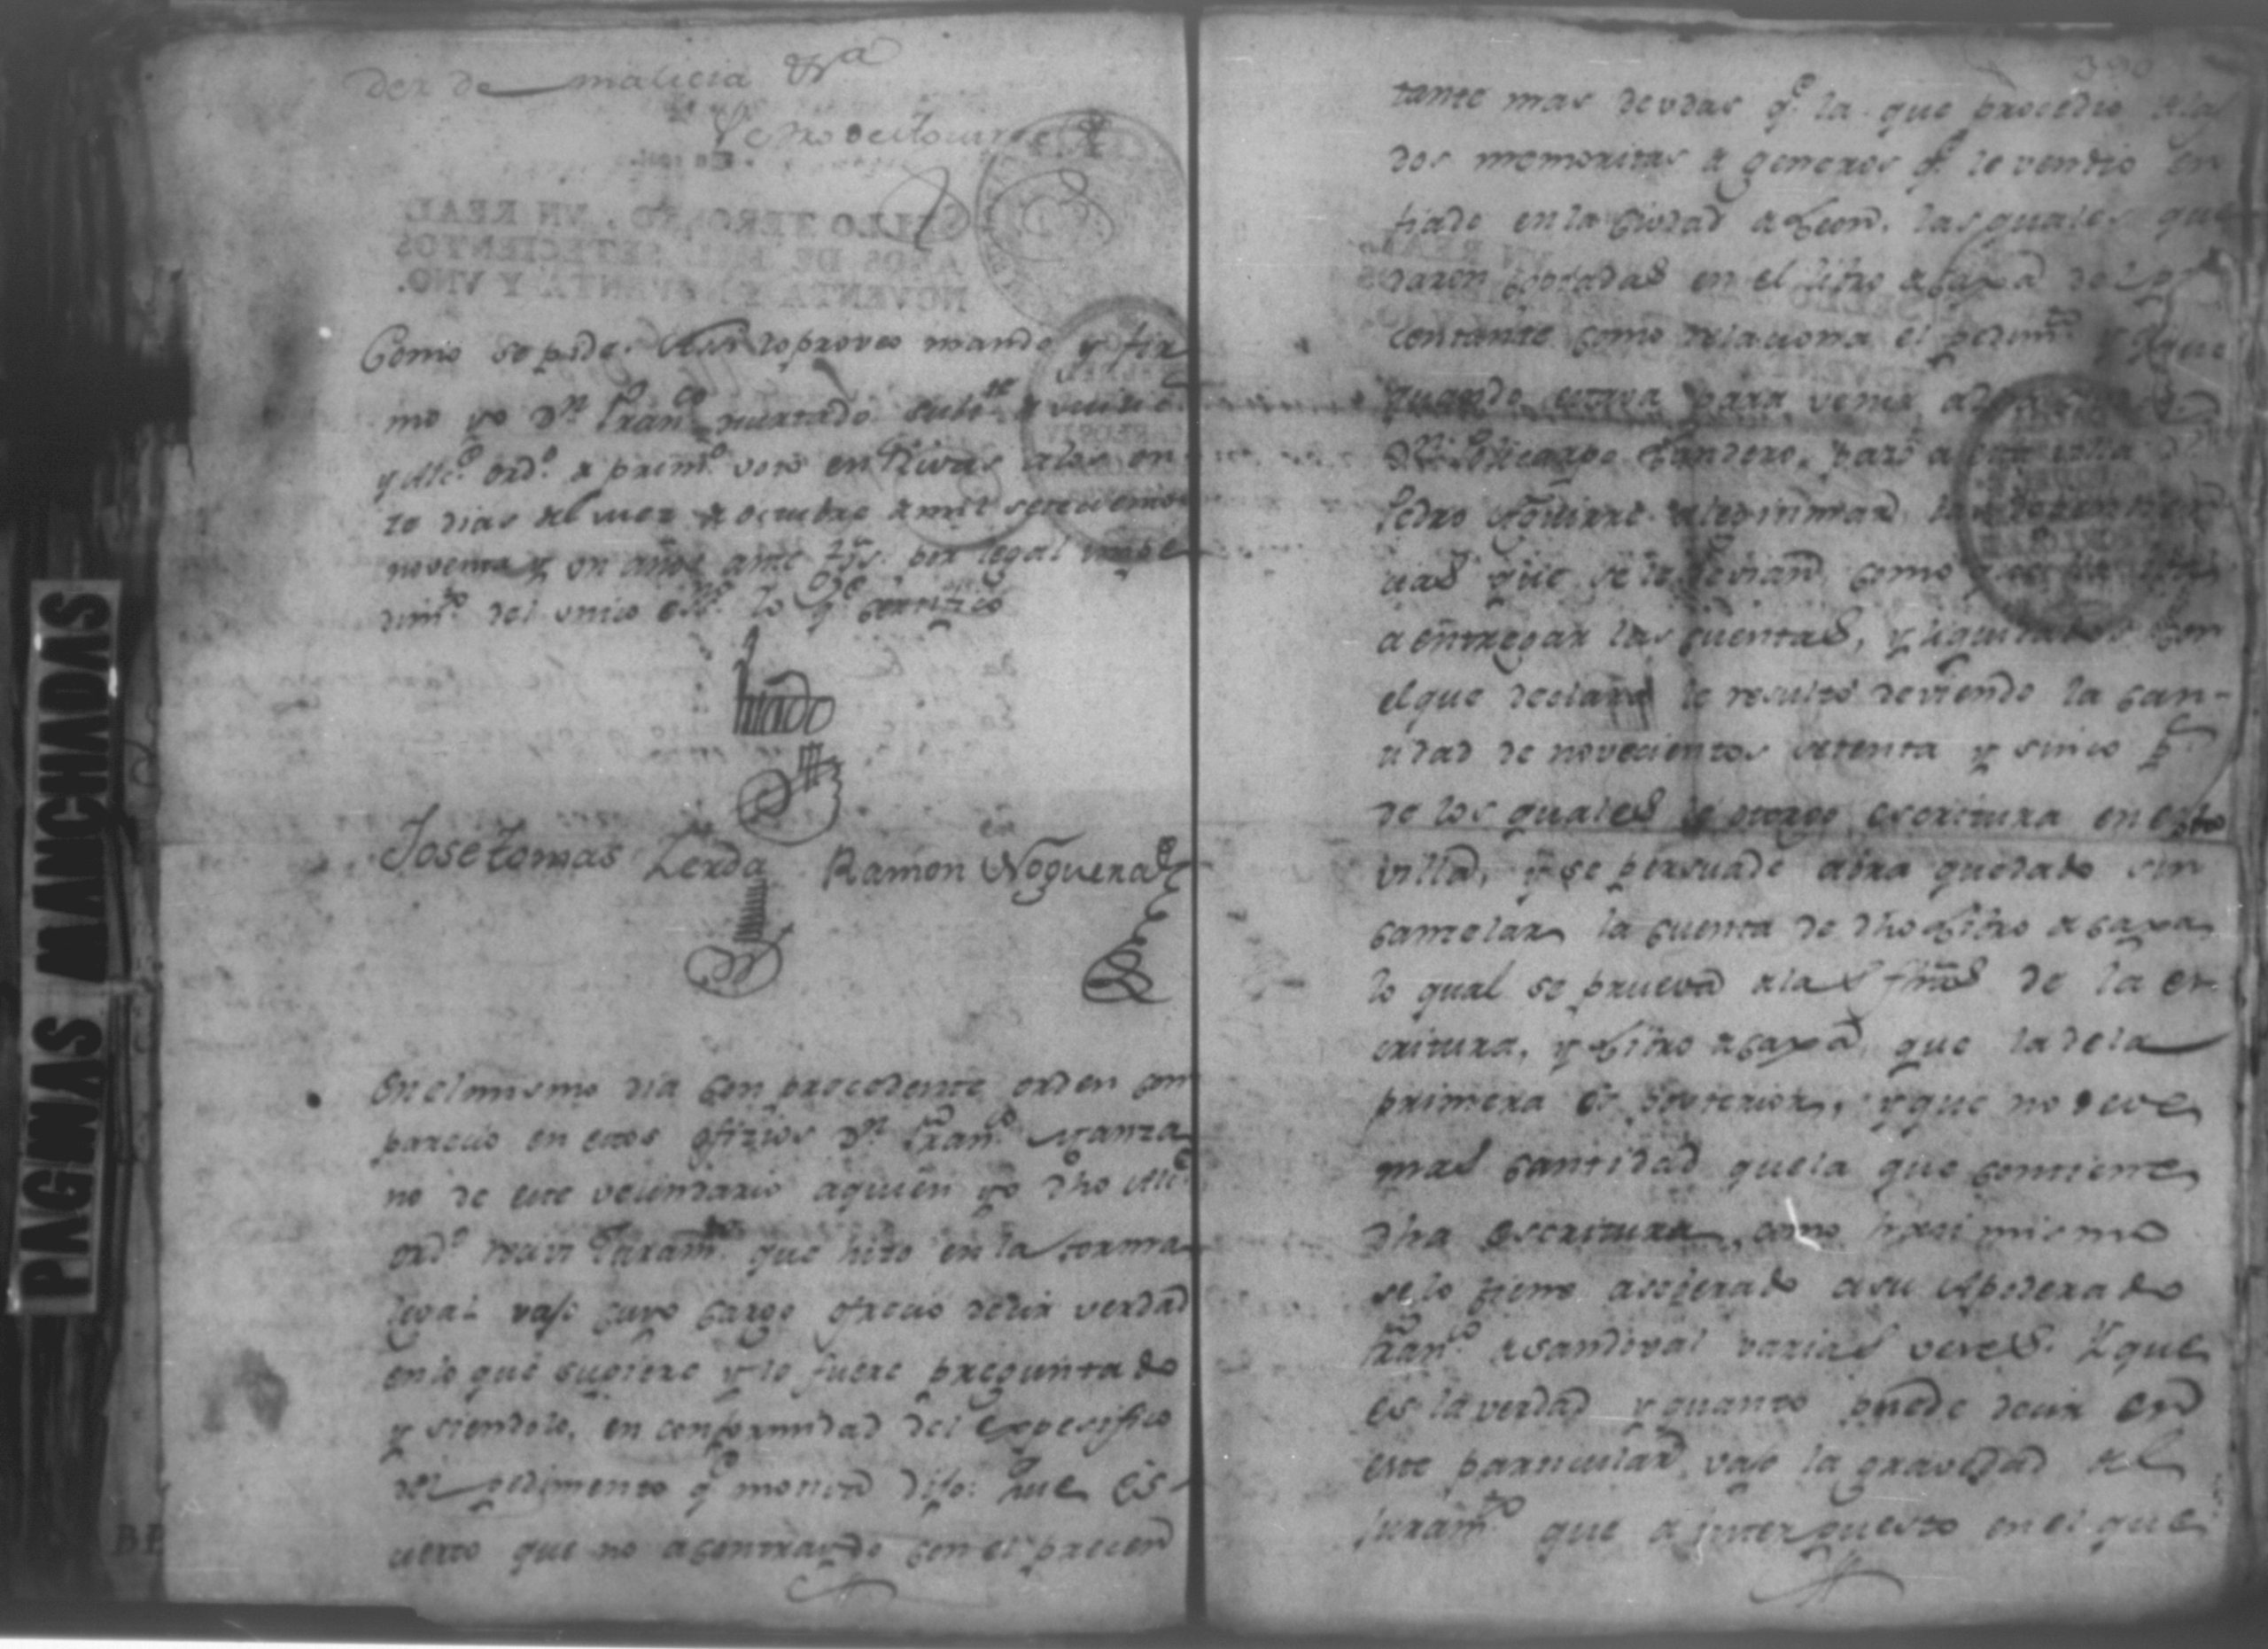 der de malicia &ra
Pedro de Aguirre
SELLO TERCERO, VN REAL,
AÑOS DE MIL SETECIENTOS
NOVENTA Y NOVENTA Y VNO.
Como se pide. Assi lo proveo mando y fir
mo yo Dn. Franco. Hurtado
y Alce. ordo. de primo. voto en Rivas a los on
ze dias del mes de octubre de mil setecientos
noventa y un años ante tgos. por legal impe
dimto. del unico esno. lo qe. certifico
Hurtado
Jose tomas Zerda Ramon Noguera
En el mismo dia con precedente orden com
parecio en estos ofizios Dn. Franco. Manza
no de este vecindario aquien yo dho Alce.
ordo. recivi Juramto. que hizo en la forma
legal vajo cuyo cargo ofrecio decir verdad
en lo que supiere y le fuere preguntado
y siendolo, en conformidad del expesifico
del pedimento qe. motiva dijo: Que es
cierto que no a contraydo con el precen
tante mas deudas qe. la que procedio de las
dos memorias de generos qe. le vendio en
fiado en la Ciudad de Leon, las quales que
daron sentadas en el libro de caxa del pre
centante como relaciona el pedimto. y que
quando estava para venir
Dn. Policarpo Landero, paso a esta villa Dn.
Pedro Aguirre
cias que se le devian como
a entregar las cuentas, y liquidados con
el que declara le resulto deviendo la can-
tidad de novecientos setenta y sinco ps.
de los quales le otorgo escritura en esta
villa, y se persuade abra quedado sin
cancelar la cuenta de dho Libro de caxa
lo qual se prueva de las fhas de la es
critura, y Libro de caxa, que la de la
primera es posterior, y que no deve
mas cantidad que la que contiene
dha escritura, como haci mismo
se lo tiene aseverado a su Apoderado
Franco. de Sandoval varias veces. Y que
es la verdad y quanto puede decir en
este particular vajo la gravedad del
Juramto. que a interpuesto en el que
PAGINAS MANCHADAS